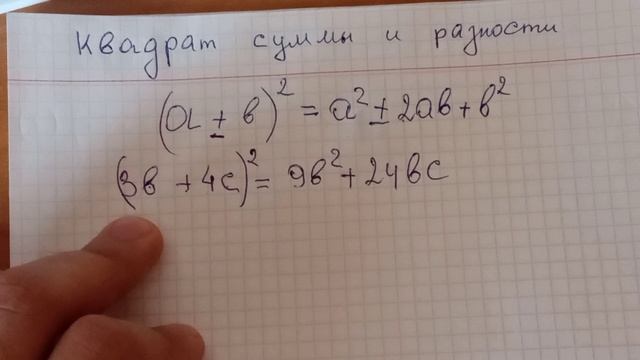 Квадрат суммы и разности
(a ± b)² = a² ± 2ab + b²
(3b + 4c)² = 9b² + 24bc